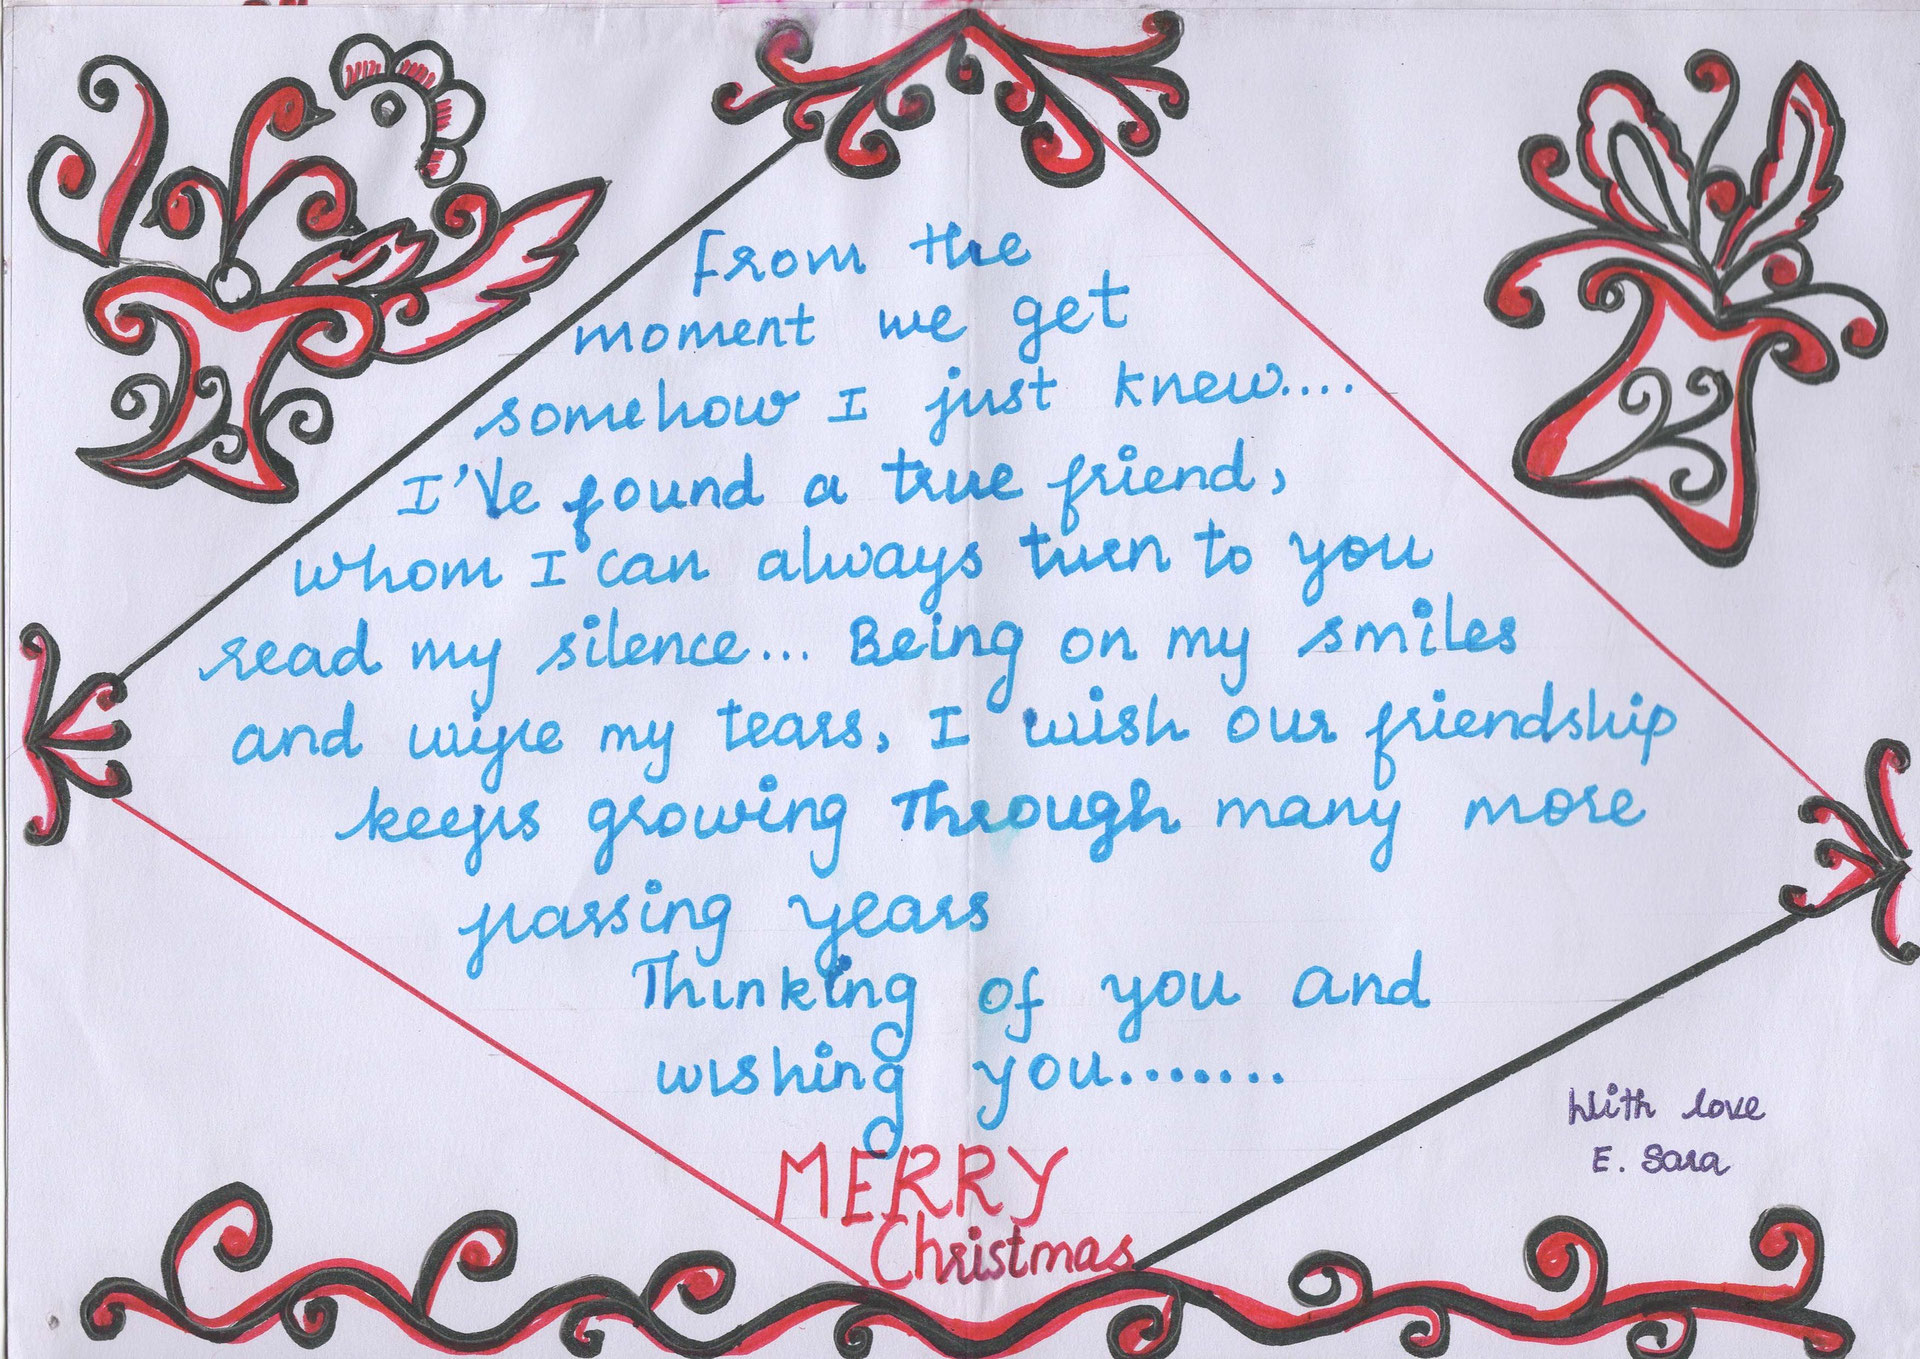 From the
moment we get
somehow I just knew....
I've found a true friend,
whom I can always turn to you
read my silence... Being on my smiles
and wipe my tears, I wish our friendship
keeps growing Through many more
passing years
Thinking of you and
wishing you.......
MERRY
Christmas
With love
E. Sara